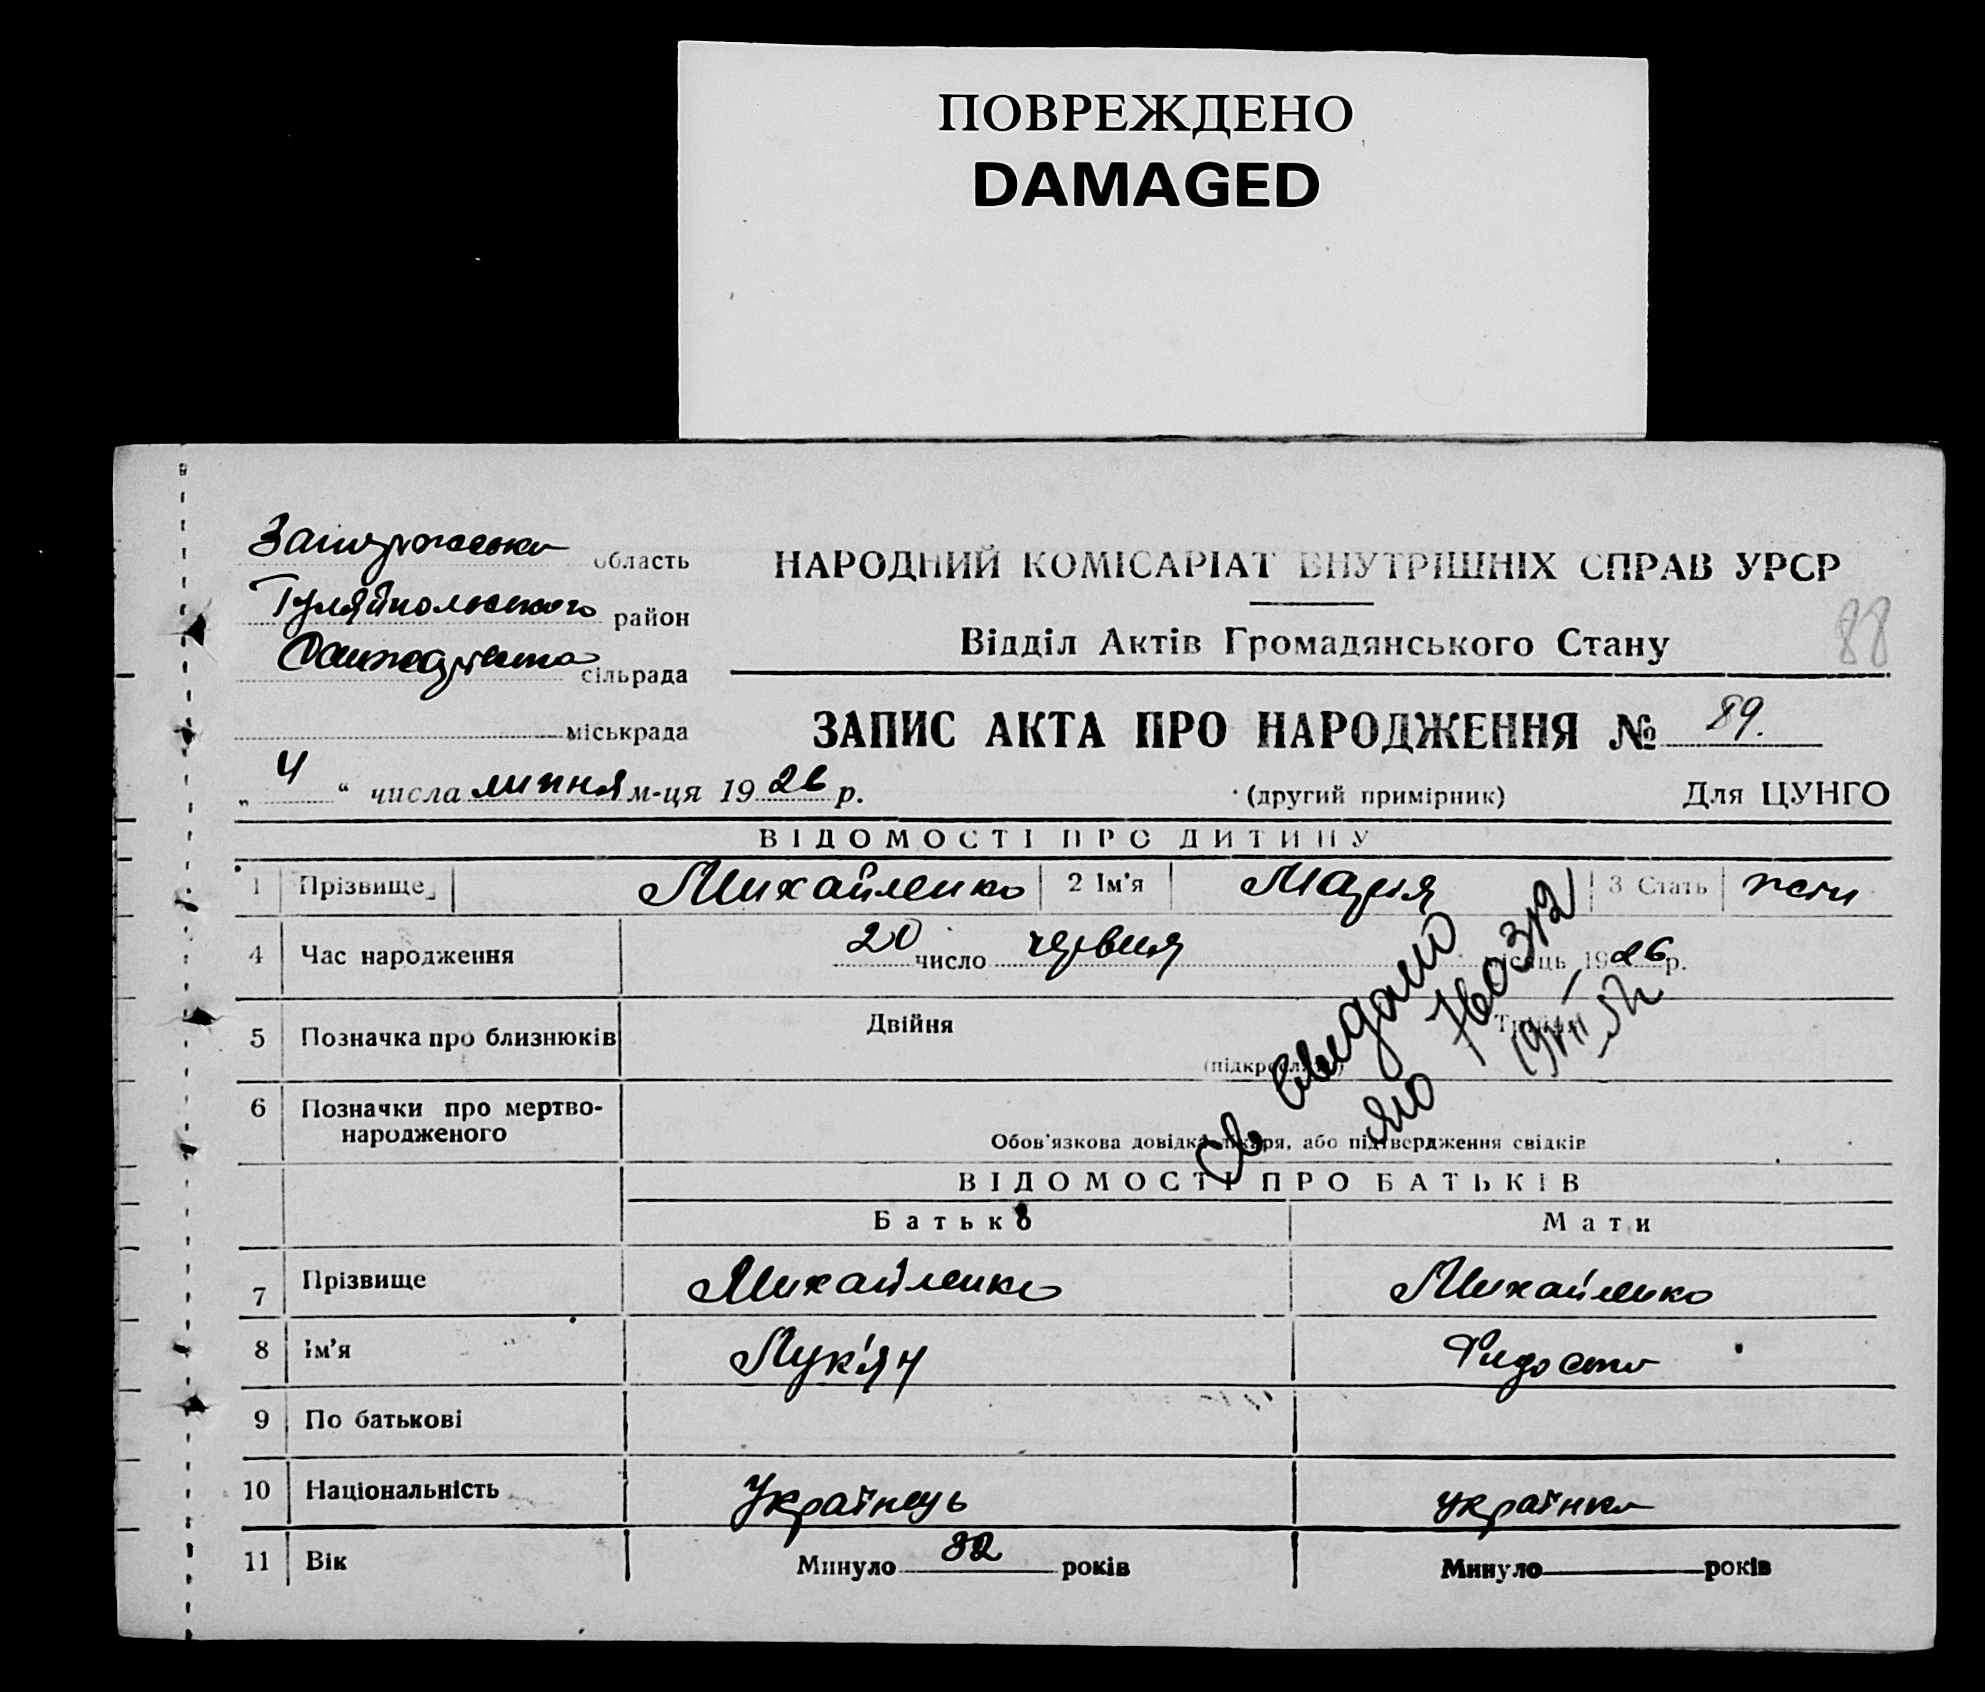 ПОВРЕЖДЕНО
DAMAGED
Запорожська область
Гуляйпольського район
сільрада
міськрада
НАРОДНИЙ КОМІСАРІАТ ВНУТРІШНІХ СПРАВ УРСР
Відділ Актів Громадянського Стану
88
ЗАПИС АКТА ПРО НАРОДЖЕННЯ № 89.
„ 4 “ числа липня м-ця 1926 р.
(другий примірник) Для ЦУНГО
ВІДОМОСТІ ПРО ДИТИНУ
1 Прізвище Михайленко 2 Ім'я Марія 3 Стать жін
4 Час народження 20 число червня місяць 1926 р.
5 Позначка про близнюків Двійня Трійня
(підкреслити)
6 Позначки про мертво-
народженого
Обов'язкова довідка лікаря, або підтвердження свідків
ВІДОМОСТІ ПРО БАТЬКІВ
Батько Мати
7 Прізвище Михайленко Михайленко
8 Ім'я Лук'ян Фидосія
9 По батькові
10 Національність Українець українка
11 Вік Минуло 32 років Минуло років